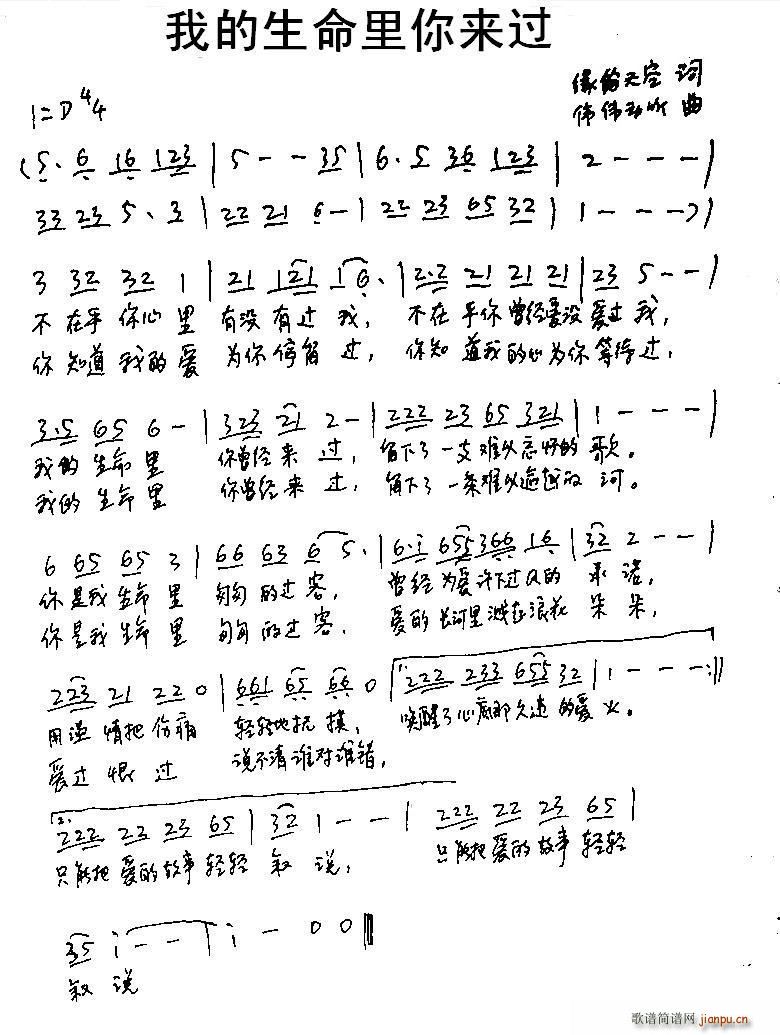 我的生命里你来过
缘的天空 词
伟伟 曲
1=D 4/4
(5. 6 16 123 | 5 - - 35 | 6. 5 36 123 | 2 - - - |
33 23 5. 3 | 22 21 6 - | 22 23 65 32 | 1 - - -) |
3 32 32 1 | 21 121 16. | 2.2 21 21 21 | 23 5 - - |
不在乎你心里 有没有过我, 不在乎你曾经爱没爱过我,
你知道我的爱 为你停留过, 你知道我的心为你等待过,
3.5 65 6 - | 323 21 2 - | 222 23 65 321 | 1 - - - |
我的生命里 你曾经来过, 留下了一支难以忘怀的歌。
我的生命里 你曾经来过, 留下了一条难以逾越的河。
6 65 65 3 | 66 63 6 5. | 6.i 655 366 16 | 32 2 - - |
你是我生命里 匆匆的过客, 曾经为爱许下过的 承诺,
你是我生命里 匆匆的过客, 爱的长河里溅在浪花朵朵,
223 21 22 0 | 661 65 66 0 | 1. 222 233 655 32 | 1 - - - :||
用温情把伤痛 轻轻地抚摸, 唤醒了心底那久违的爱火。
爱过恨过 说不清谁对谁错,
2. 222 23 23 65 | 32 1 - - | 222 22 23 65 |
只能把爱的故事轻轻叙说, 只能把爱的故事轻轻
35 i - - | i - 0 0 ||
叙说
歌谱简谱网
jianpu.cn